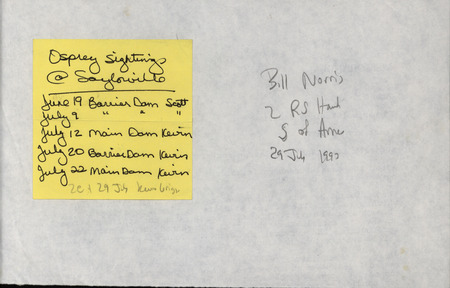 Osprey Sightings
@ Saylorville
June 19 Barrier Dam Scott
July 9 " " "
July 12 Main Dam Kevin
July 20 Barrier Dam Kevin
July 22 Main Dam Kevin
29 July
Bill Norris
2
S of Ames
29 July